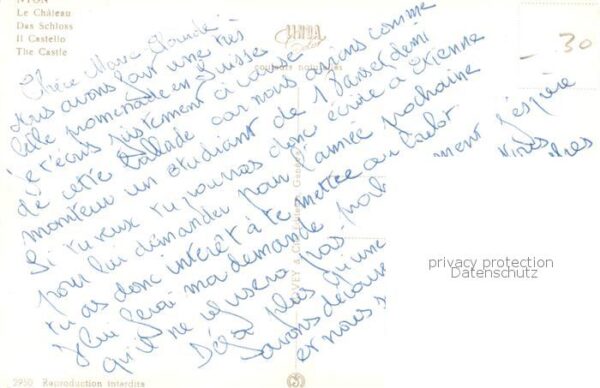 NYON
Le Château
Das Schloss
Il Castello
The Castle
Chère Marie Claude
Nous avons fait une très
belle promenade en Suisse
je t'écris justement à cause
de cette ballade car nous avions comme
moniteur un étudiant de
Si tu veux tu pourras donc écrire à Etienne
pour lui demander pour l'année prochaine
tu as donc intérêt à te mettre au boulot
j'lui ferai ma demande
qu'il ne refusera pas
Déjà plus qu'une
savons
et nous
ment j'espère
30
privacy protection
Datenschutz
2950 Reproduction interdite